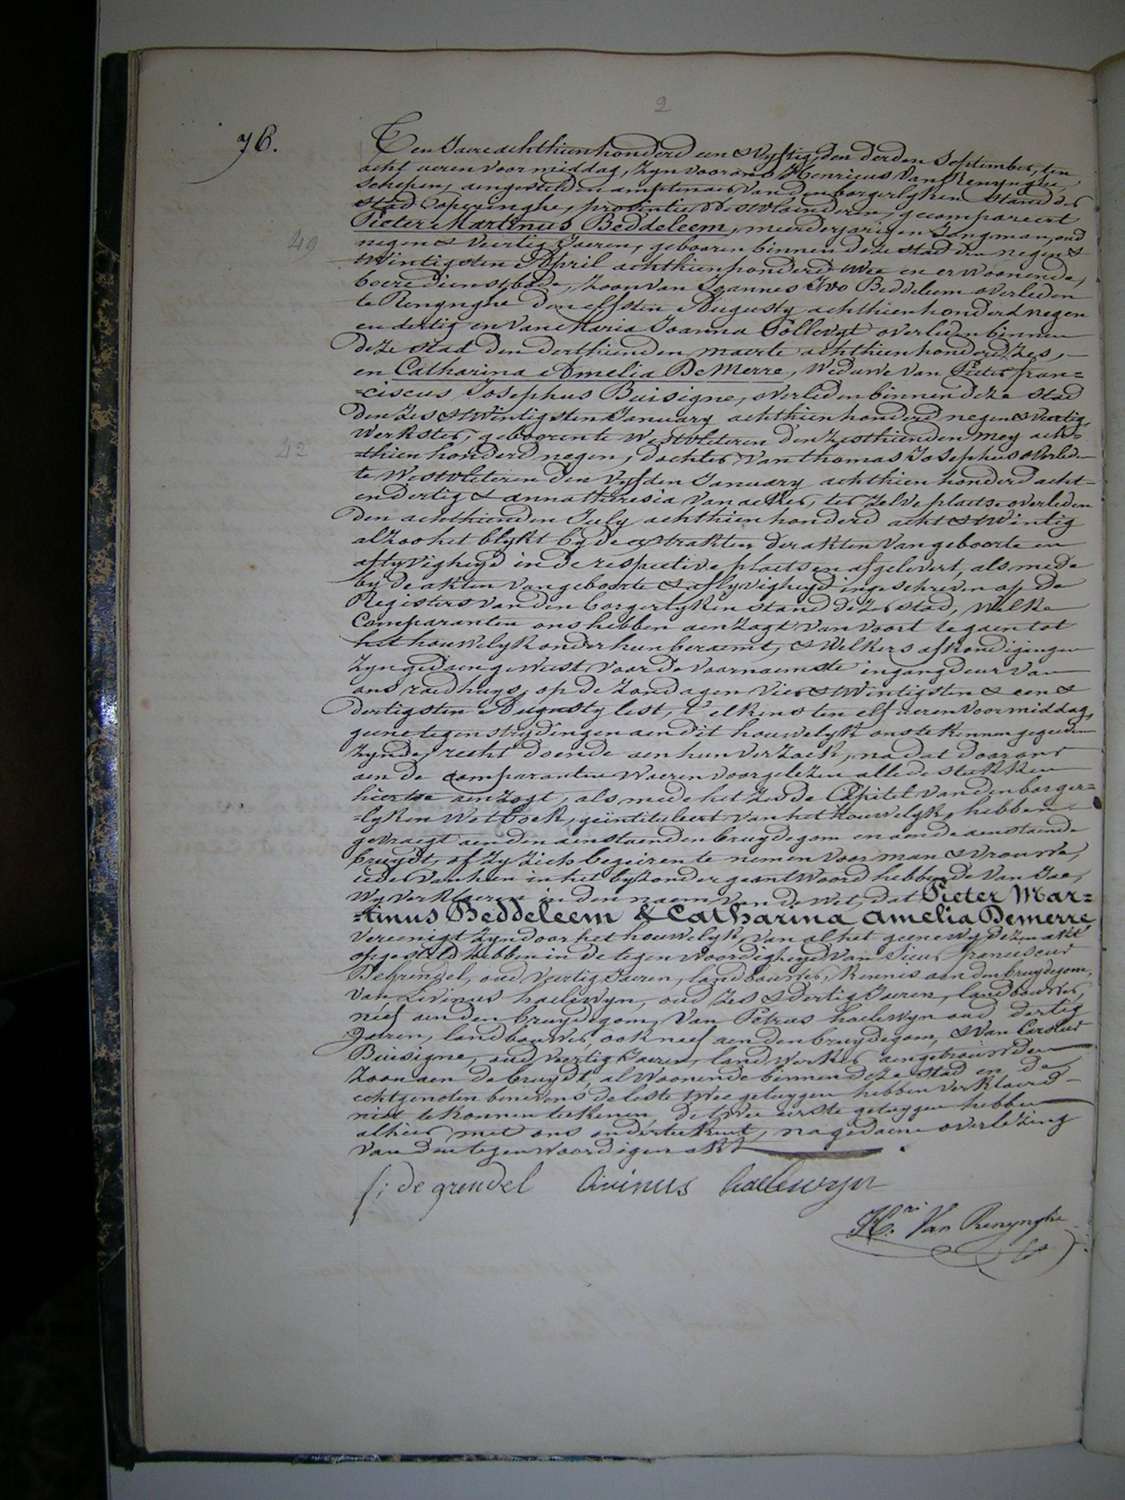 2
76.
Ten Jaere achthien honderd een & vyftig, den derden September, ten
acht ueren voormiddag, zyn voor ons Henricus Van Renynghe,
Schepen, amptenaer van den borgerlyken stand der
stad Poperinghe, provintie Westvlaenderen, gecompareert
Pieter Martinus Beddeleem, meerderjarigen Jongman, oud
49
negen & veertig Jaeren, gebooren binnen deze stad den negen &
twintigsten April achthien honderd twee en er woonende,
boeredienstbode, zoon van Joannes Ivo Beddeleem overleden
te Renynghe den elfsten Augusty achthien honderd negen
en dertig en van Maria Joanna Gollevyt overleden binnen
deze stad den derthienden maerte achthien honderd zes,
en Catharina Amelia De Merre, Weduwe van Pieter fran=
=ciscus Josephus Buisigne, overleden binnen deze stad
den zes & twintigsten January achthien honderd negen & veertig,
Werkster, geboren te Westvleteren den zesthienden mey ach=
42
=thien honderd negen, dochter van thomas Josephus overleden
te Westvleteren den vyfden January achthien honderd acht=
en dertig & anna theresia Van acker, ter zelve plaetse overleden
den achthienden July achthien honderd acht & twintig
alzoo het blykt by de extrakten der akten van geboorte en
aflyvigheyd in de respective plaetsen afgelevert, als mede
by de akten van geboorte & aflyvigheyd ingeschreven op de
Registers van den borgerlyken stand dezer stad, Welke
Comparanten ons hebben aenzogt van voort te gaen tot
het houwelyk onder hun beraemt, & Welkers afkondigingen
zyn gedaen geweest voor de voornaemste ingangdeur van
ons raedhuys, op de zondagen vier & twintigsten & een &
dertigsten Augusty lest, t'elkens ten elf ueren voormiddag,
geene tegenstrydingen aen dit houwelyk ons te kennen gegeven
zynde, recht doende aen hun verzoek, na dat door ons
aen de Comparanten Waeren voorgelezen alle de stukken
hiertoe aenzogt, als mede het zesde Capitel van den borger=
=lyken Wetboek, geïntituleert van het houwelyk, hebben
gevraegt aen den aenstaenden bruydegom en aen de aenstaende
bruydt, of zy zich begeiren te nemen voor man & vrouwe,
ieder van hun in het byzonder geantwoord hebbende van Jae,
Wy verklaeren in den naem van de Wet, dat Pieter Mar=
=tinus Beddeleem & Catharina Amelia Demerre
vereenigt zyn door het houwelyk, van al het geene wy dezen akt
opgesteld hebben in de tegenwoordigheyd van Sieur franciscus
Degrendel, oud veertig Jaeren, landbouwer, Kennis aen den bruydegom,
Van Livinus haelewyn, oud zes & dertig Jaeren, landbouwer,
neef aen den bruydegom, Van Petrus haelewyn oud dertig
Jaeren, landbouwer, ook neef aen den bruydegom, & Van Carolus
Buisigne, oud veertig Jaeren, landwerker aengetrouwden
zoon aen de bruydt, al Woonende binnen deze stad en de
echtgenoten benevens de leste twee getuygen hebben verklaerd
niet te konnen teekenen, de twee eerste getuygen hebben
alhier met ons onderteekent, na gedaene overlezing
van den tegenwoordigen akt.
f: de grendel Livinus haelewyn
H.ri Van Renynghe